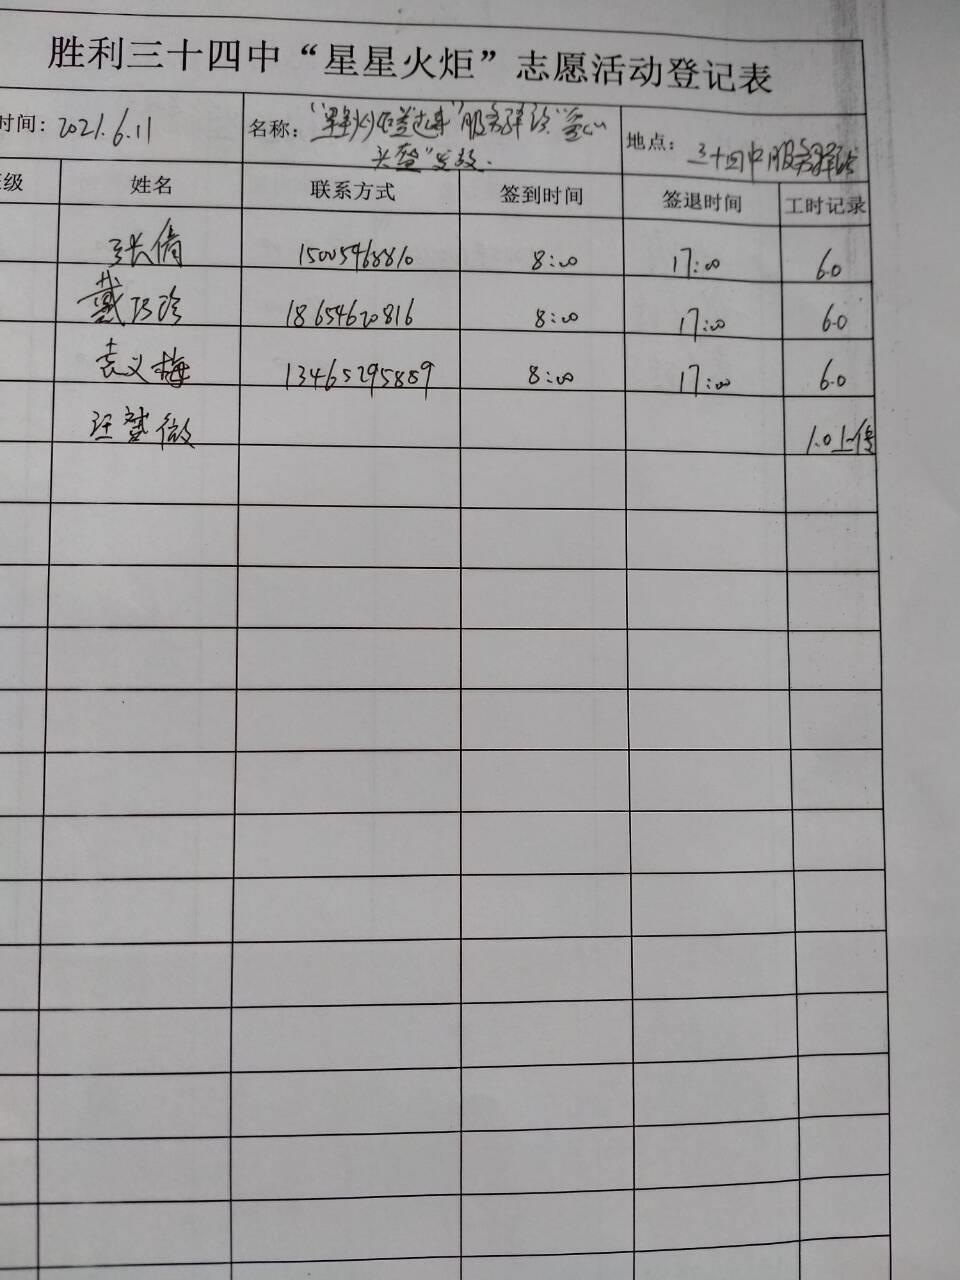 胜利三十四中“星星火炬”志愿活动登记表
时间：2021.6.11 名称：“星星火炬娄过来”服务驿站“爱心 地点：三十四中服务驿站
头盔”发放.
级 姓名 联系方式 签到时间 签退时间 工时记录
张倩 15005468810 8:00 17:00 6.0
戴巧珍 18654620816 8:00 17:00 6.0
袁义梅 13465295889 8:00 17:00 6.0
汪赟微 1.0上传